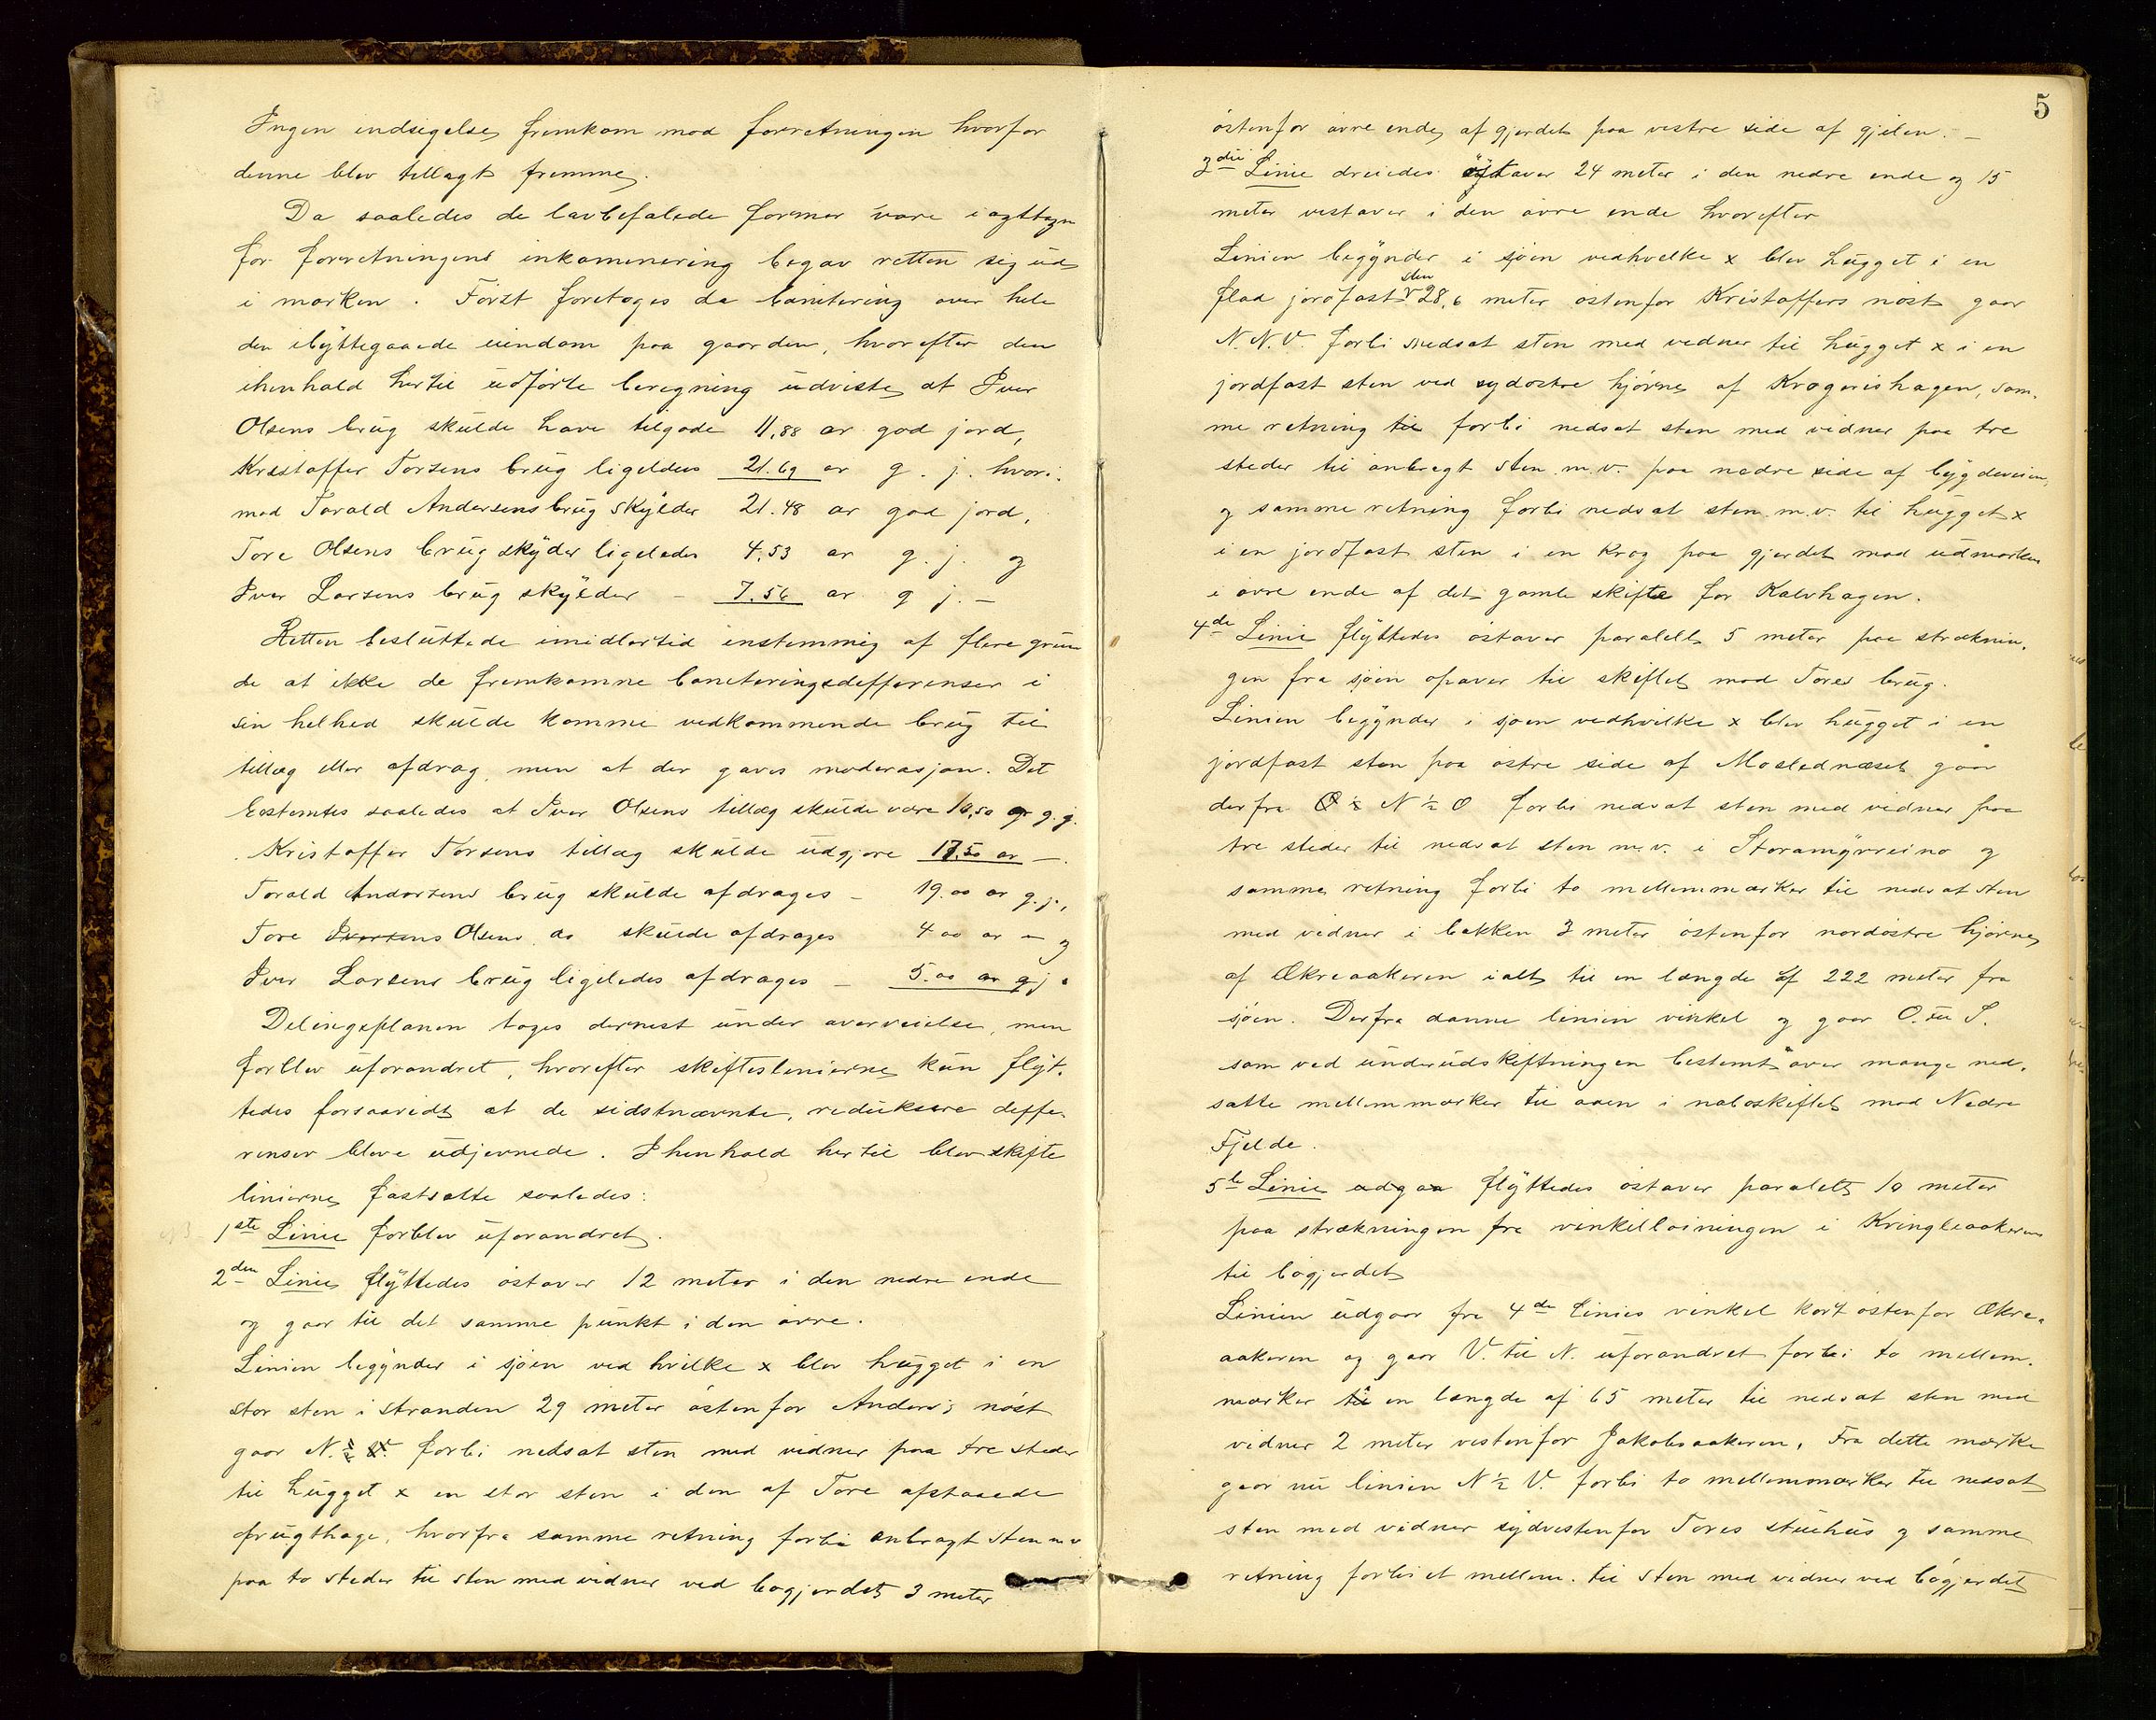 Ingen indsigelse fremkom mod forretningen hvorfor
denne blev tillagt fremme.
Da saaledes de lovbefalede former vare iagttagn
for forretningens inkaminering begav retten sig ud
i marken. Först foretoges da bonitering over hele
den ibyttegaaede eiendom paa gaarden, hvorefter den
ihenhold hertil udförte beregning udviste at Iver
Olsens brug skulde have tilgode 11,88 ar god jord,
Kristoffer Torsens brug ligeledes 21.69 ar g. j. hvori-
mod Torald Andersens brug skylder 21.48 ar god jord,
Tore Olsens brug skyder ligeledes 4,53 ar g. j. og
Iver Larsens brug skylder – 7.56 ar g j. –
Retten besluttede imidlertid enstemmig af flere grun
de at ikke de fremkomne boniteringsdefferenser i
sin helhed skulde komme vedkommende brug til
tillæg eller afdrag, men at der gaves moderasjon. Det
bestemtes saaledes at Iver Olsens tillæg skulde være 10,50 ar g. j.
Kristoffer Torsens tillæg skulde udgjøre 17.50 ar –.
Torald Andersens brug skulde afdrages – 19.00 ar g. j.,
Tore Iversens Olsens do skulde afdrages 4 00 ar – og
Iver Larsens brug ligeledes afdrages – 5.00 ar g j.
Delingsplanen toges dernest under overveielse, men
forblev uforandret, hvorefter skifteslinierne kun flyt-
tedes forsaavidt at de sidstnævnte, reduksere deffe-
renser bleve udjevnede. I henhold hertil blev skifte
linierne fastsatte saaledes:
1ste Linie forblev uforandret.
2den Linie flyttedes östover 12 meter i den nedre ende
og gaar til det samme punkt i den övre.
Linien begynder i sjöen ved hvilke x blev hugget i en
stor sten i stranden 29 meter östenfor Anders's nöst
gaar N. forbi nedsat sten med vidner paa tre steder
til hugget x en stor sten i den af Tore afstaaede
frugthage, hvorfra samme retning forbi anbragt sten m v
paa to steder til sten med vidner ved bögjerdet 3 meter
5
östenfor övre ende af gjerdet paa vestre side af gjilen. –
3die Linie dreiedes östover 24 meter i den nedre ende og 15
meter vestover i den övre ende hvorefter
Linien begynder i sjöen vedhvilke x blev hugget i en
flad jordfast sten 28,6 meter östenfor Kristoffers nöst gaar
N. N. V. forbi nedsat sten med vidner til hugget x i en
jordfast sten ved sydöstre hjörne af Krogerishagen, sam-
me retning til forbi nedsat sten med vidner paa tre
steder til anbragt sten m. v. paa nedre side af bygdeveien,
og samme retning forbi nedsat sten m. v. til hugget x
i en jordfast sten i en krog paa gjerdet mod udmarken
i övre ende af det gamle skifte for Kalvhagen.
4de Linie flyttedes östover paralelt 5 meter paa streknin-
gen fra sjöen opover til skiftet mod Tores brug.
Linien begynder i sjöen vedhvilke x blev hugget i en
jordfast sten paa östre side af Moslednæset gaar
derfra N ½ O forbi nedsat sten med vidner paa
tre steder til nedsat sten m. v. i Storamyrreino og
samme retning forbi to mellemmærker til nedsat sten
med vidner i bakken 3 meter östenfor nordöstre hjörne
af Ækreaakeren ialt til en længde af 222 meter fra
sjöen. Derfra danne linien vinkel og gaar O. til S.
som ved underudskiftningen bestemt over mange ned-
satte mellemmærker til aaen i naboskiftet mod Nedre
Fjelde.
5te Linie udgaa flyttedes östover paralelt 10 meter
paa strækningen fra vinkellöiningen i Kringleaakeren
til bögjerdet
Linien udgaar fra 4de Linies vinkel kort östenfor Ækre-
aakeren og gaar V. til N. uforandret forbi to mellem-
mærker til en længde af 65 meter til nedsat sten med
vidner 2 meter vestenfor Jakobsaakeren. Fra dette mærke
gaar nu linien N ½ V. forbi to mellemmærker til nedsat
sten med vidner sydvestenfor Tores stuehus og samme
retning forbi et mellem. til sten med vidner ved bögjerdet